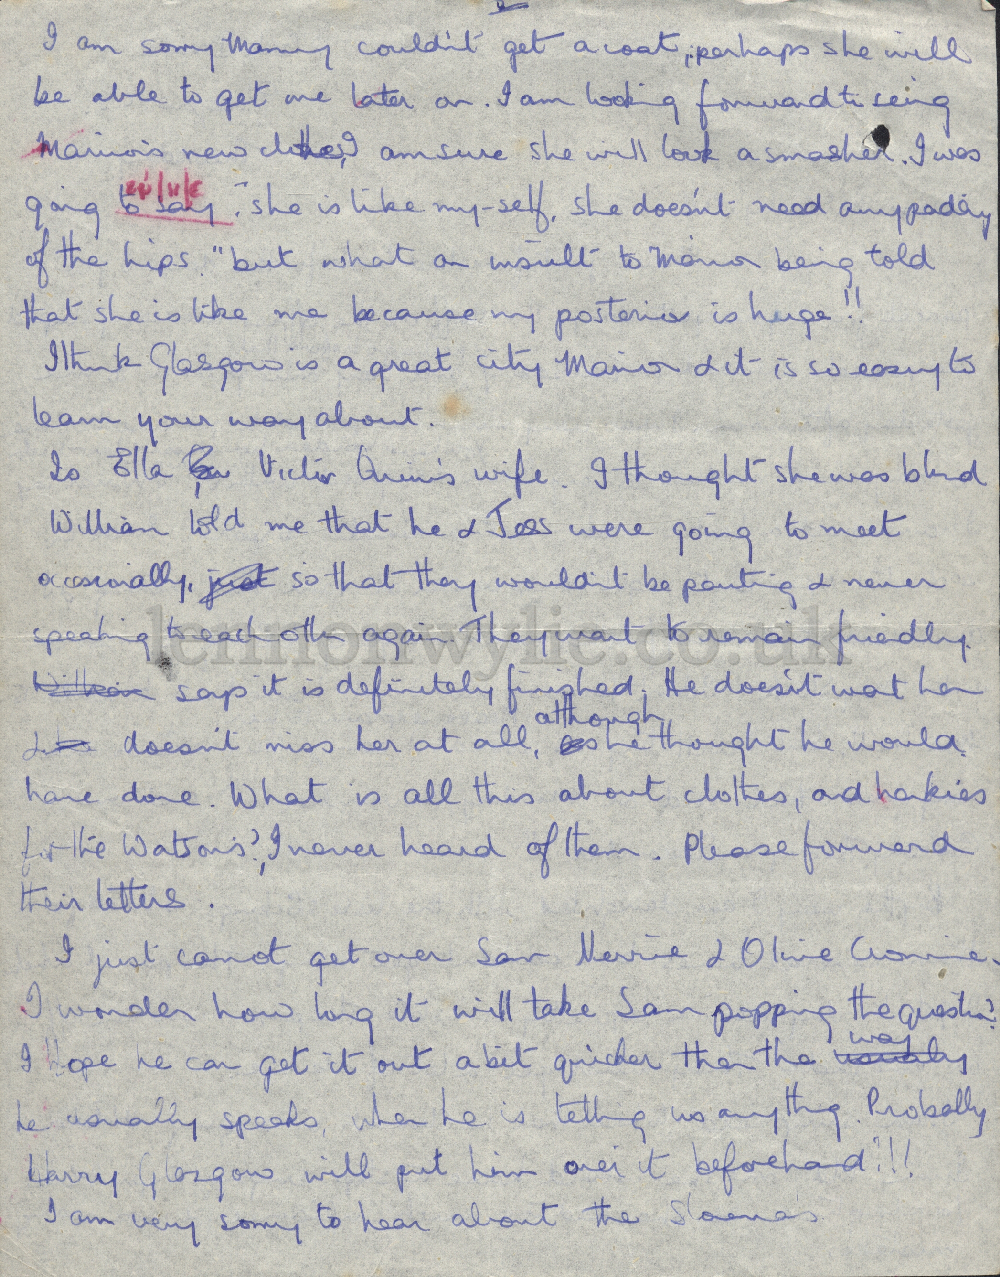 2
I am sorry Mammy couldn't get a coat, perhaps she will
be able to get one later on. I am looking forward to seeing
Marion's new clothes, I am sure she will look a smasher. I was
going to say, "she is like my-self, she doesn't need any padding
of the hips." but what an insult to Marion being told
that she is like me because my posterior is huge!!
I think Glasgow is a great city Marion & it is so easy to
learn your way about.
Is Ella Victor wife. I thought she was blind
William told me that he & Jess were going to meet
occasionally, just so that they wouldn't be parting & never
speaking to each other again. They want to remain friendly.
William says it is definitely finished. He doesn't want her
& doesn't miss her at all, although he thought he would
have done. What is all this about clothes, and hankies
for the Watson's?, I never heard of them. Please forward
their letters.
I just cannot get over Sam & Olive
I wonder how long it will take Sam popping the question?
I hope he can get it out a bit quicker than the way
he usually speaks, when he is telling us anything. Probably
Harry Glasgow will put him over it beforehand!!!
I am very sorry to hear about the
lennonwylie.co.uk